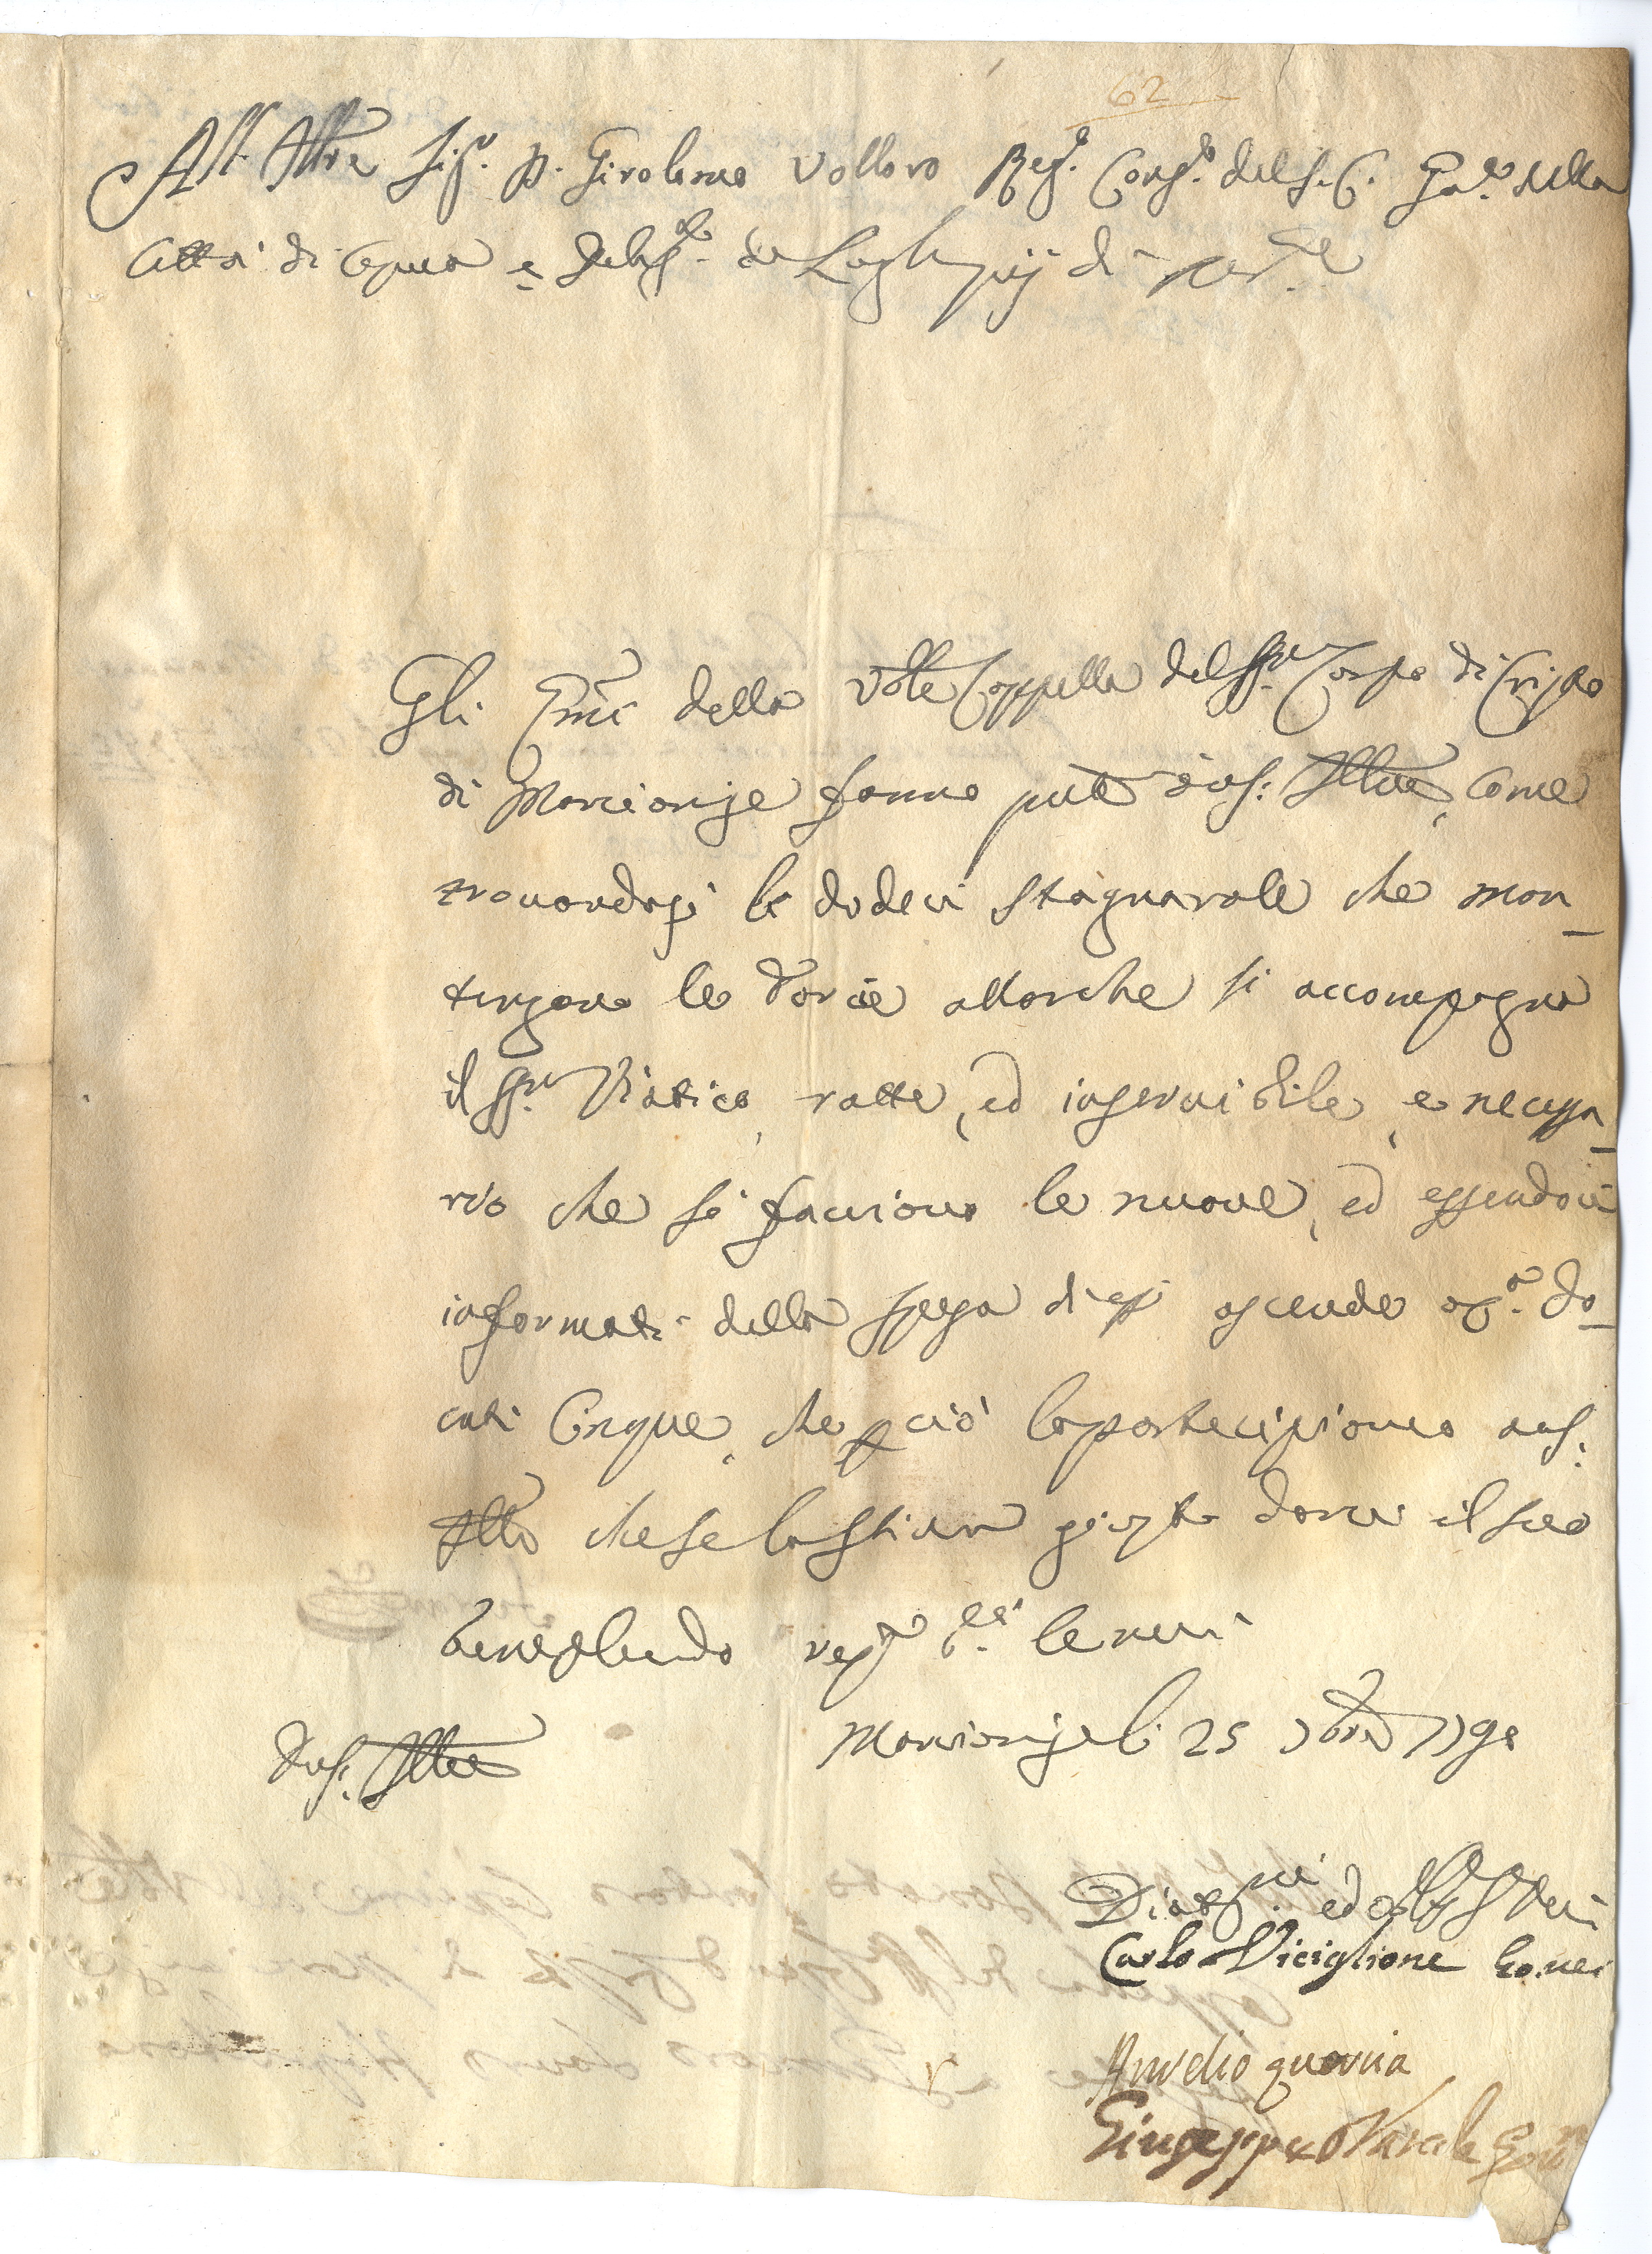 62
All' Ill.re Sig.r D. Girolamo Volloro Reg.o Cons.o del S. C. Gov.e della
Città di Capua e Deleg.to de Luoghi pij di
Gli della Vble Cappella del SS.mo Corpo di Cristo
di Marcianise fanno pnte à V.S. Illma, come
trovandosi le dodeci stagnarole che man_
tengono le Torcie allorche si accompagna
il SS.mo Viatico, rotte, ed inservibile, e necessa_
rio che si facciano le nuove, ed essendoci
informati della spesa di essi ascende a do_
cati Cinque, che p ciò lo partecipiamo a V.S.
Illma che se lo stima giusto darci il suo
beneplacido
Marcianise li 25 bre 1790
D. V.S. Illma
ed
Carlo Viciglione
Aurelio quercia
Giuseppe